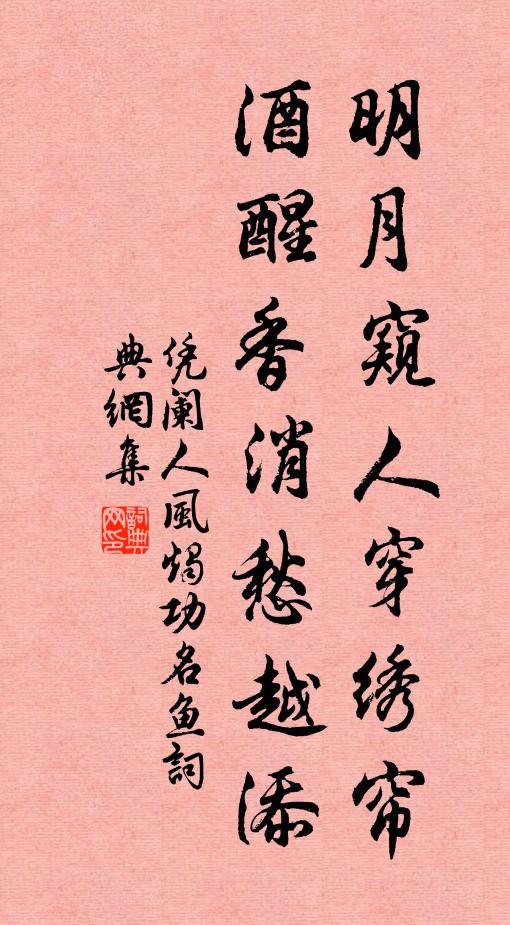 明月窺人穿綉帘
酒醒香消愁越添
凭阑人風燭功名鱼詞
典網集
詞典網印